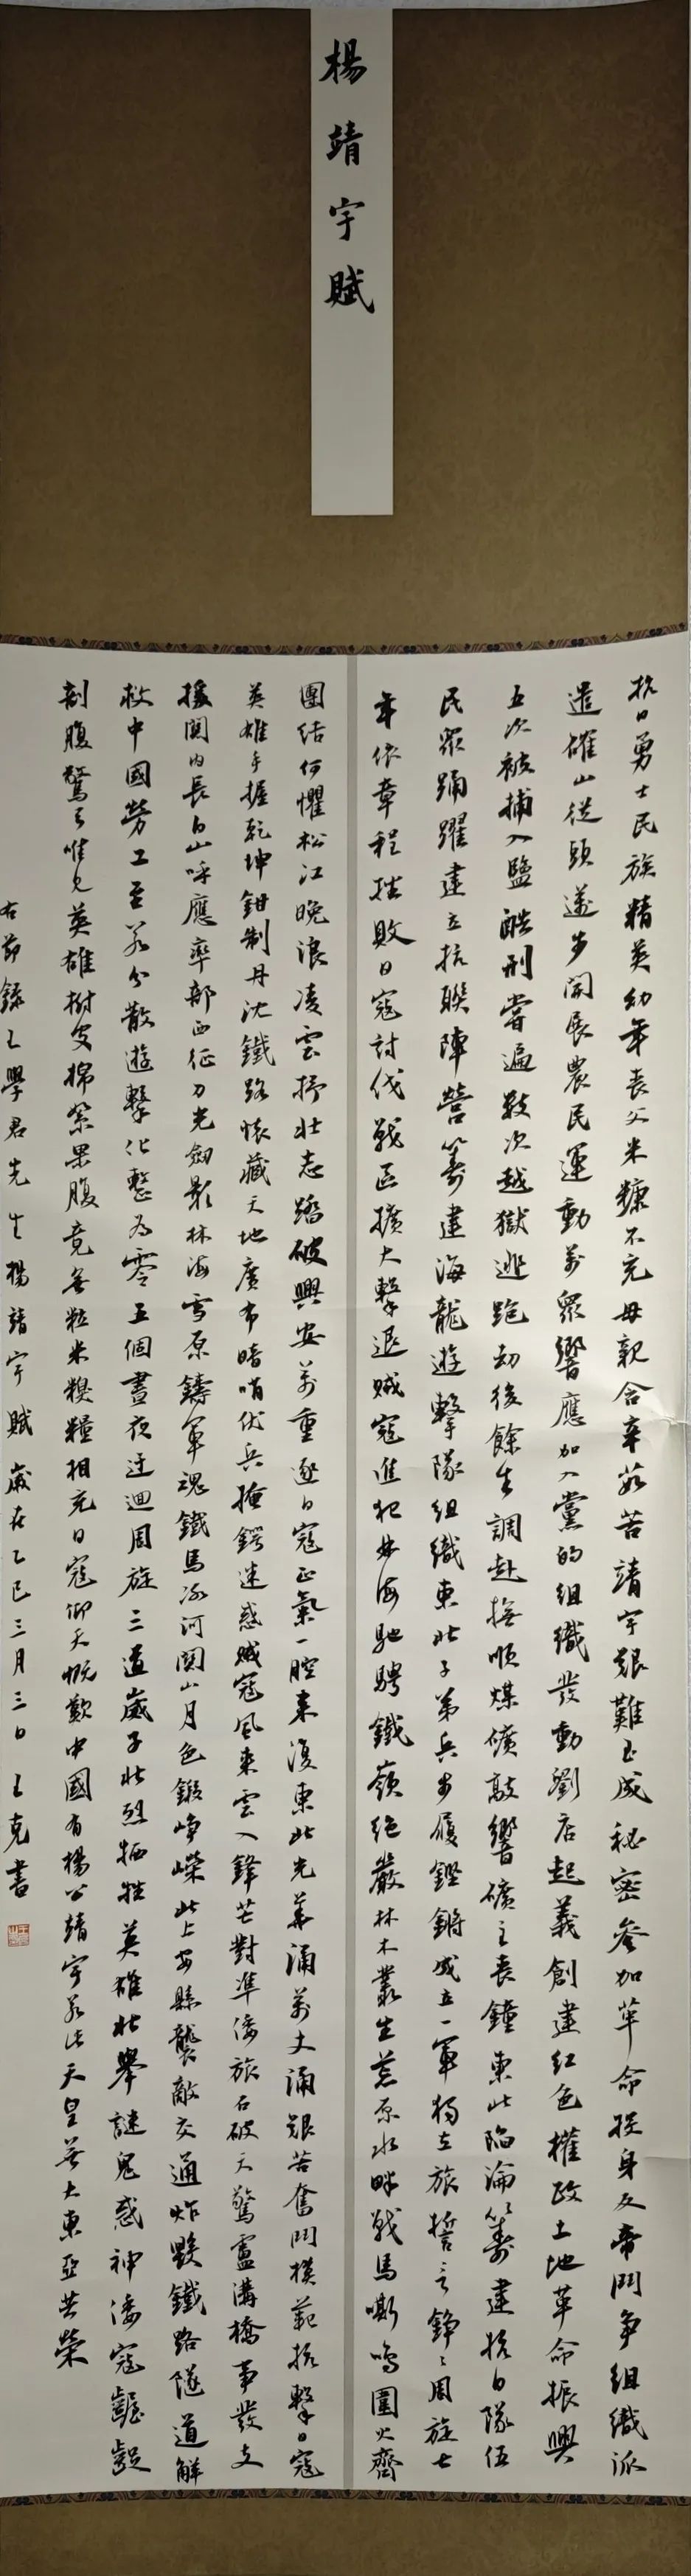 楊靖宇賦
抗日勇士民族精英幼年喪父米糠不充母親含辛茹苦靖宇艱難玉成秘密參加革命投身反帝鬥爭組織派
遣確山從頭邁步開展農民運動萬眾響應加入黨的組織發動劉店起義創建紅色權政土地革命振興
五次被捕入監酷刑嘗遍數次越獄逃跑劫後餘生調赴撫順煤礦敲響礦主喪鐘東北陷淪籌建抗日隊伍
民眾踴躍建立抗聯陣營籌建海龍遊擊隊組織東北子弟兵步履鏗鏘成立一軍獨立旅誓言錚錚周旋七
年依章程挫敗日寇討伐戰區擴大擊退賊寇進犯林海馳騁鐵嶺絕巖林木叢生荒原水畔戰馬嘶鳴圍火齊
團結何懼松江晚浪凌雲抒壯志踏破興安萬重逐日寇正氣一腔來復東北光華涌萬丈涌艱苦奮鬥模範抗擊日寇
英雄手握乾坤鉗制丹沈鐵路懷藏天地廣布暗哨伏兵掩鍔迷惑賊寇風來雲入鋒芒對準倭旅石破天驚盧溝橋事發支
援關內長白山呼應率部西征刀光劍影林海雪原鑄軍魂鐵馬冰河關山月色鍛崢嶸北上安縣襲敵交通炸毀鐵路隧道解
救中國勞工至若分散遊擊化整為零五個晝夜迂迴周旋三道崴子壯烈犧牲英雄壯舉謎鬼惑神倭寇齷齪
剖腹驚了唯見英雄樹皮棉絮果腹竟無粒米糗糧相充日寇仰天慨歎中國有楊公靖宇若此天皇無大東亞共榮
右節錄王學君先生楊靖宇賦歲在乙巳三月三日王克書